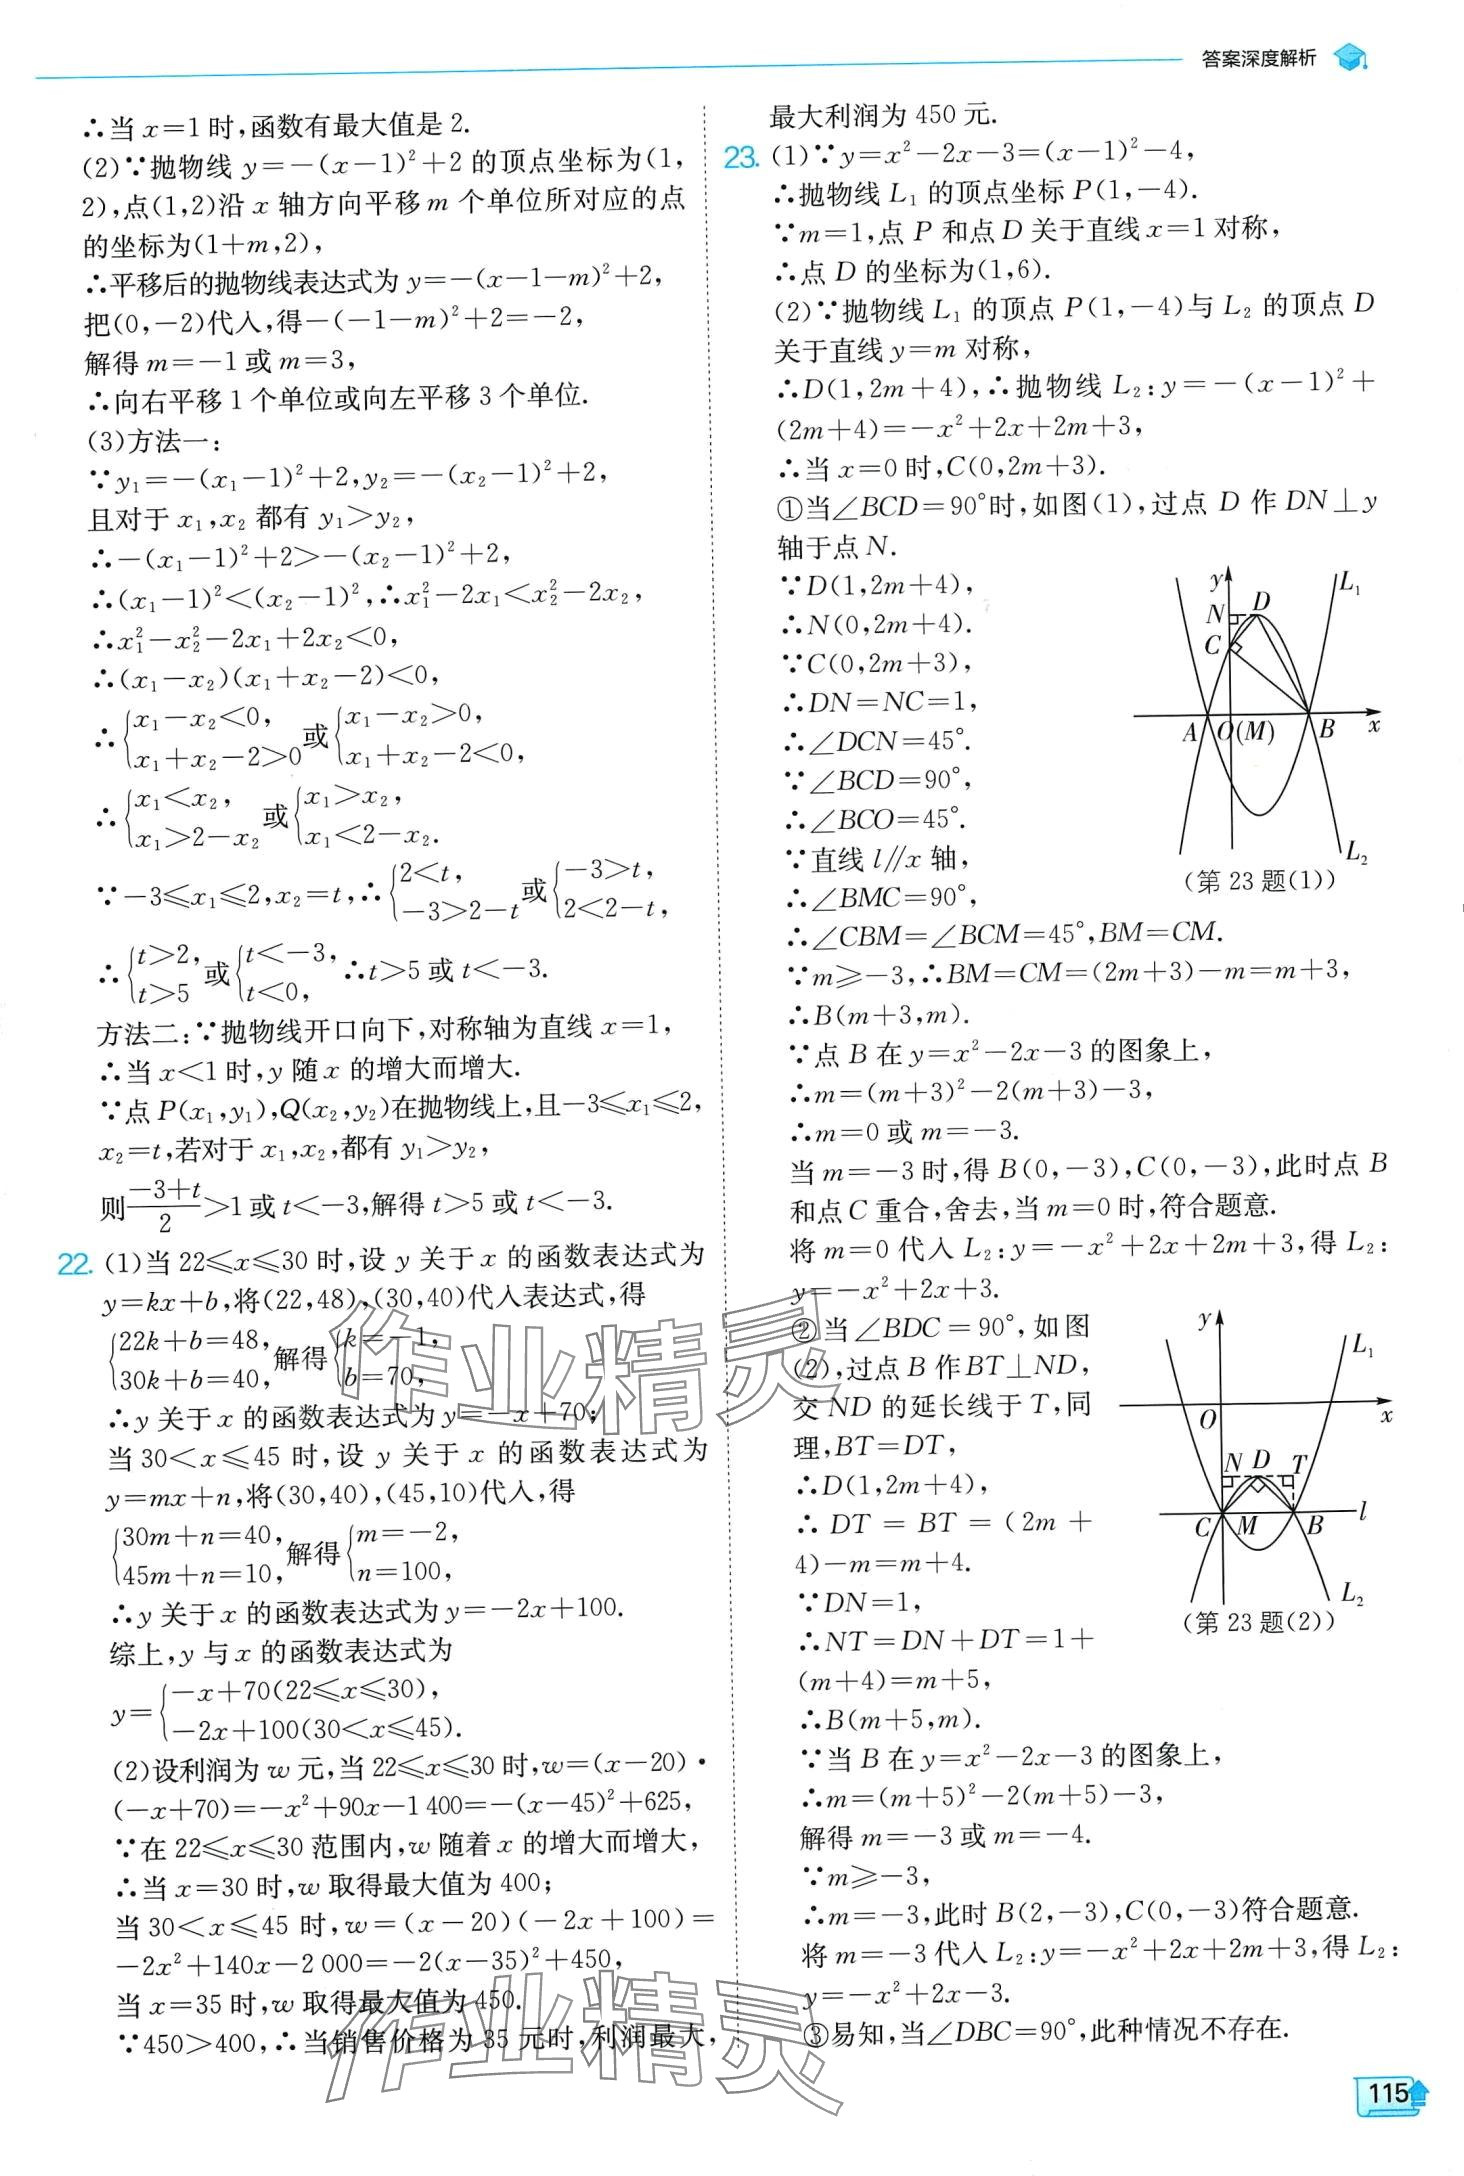 答案深度解析
∴当 x=1 时,函数有最大值是 2.
(2)∵抛物线 y=-(x-1)²+2 的顶点坐标为(1,
2),点(1,2)沿 x 轴方向平移 m 个单位所对应的点
的坐标为(1+m,2),
∴平移后的抛物线表达式为 y=-(x-1-m)²+2,
把(0,-2)代入,得-(-1-m)²+2=-2,
解得 m=-1 或 m=3,
∴向右平移 1 个单位或向左平移 3 个单位.
(3)方法一:
∵y₁=-(x₁-1)²+2,y₂=-(x₂-1)²+2,
且对于 x₁,x₂ 都有 y₁>y₂,
∴-(x₁-1)²+2>-(x₂-1)²+2,
∴(x₁-1)²<(x₂-1)²,∴x₁²-2x₁<x₂²-2x₂,
∴x₁²-x₂²-2x₁+2x₂<0,
∴(x₁-x₂)(x₁+x₂-2)<0,
∴{x₁-x₂<0, x₁+x₂-2>0 或{x₁-x₂>0, x₁+x₂-2<0,
∴{x₁<x₂, x₁>2-x₂ 或{x₁>x₂, x₁<2-x₂.
∵-3≤x₁≤2,x₂=t,∴{2<t, -3>2-t 或{-3>t, 2<2-t,
∴{t>2, t>5 或{t<-3, t<0, ∴t>5 或 t<-3.
方法二:∵抛物线开口向下,对称轴为直线 x=1,
∴当 x<1 时,y 随 x 的增大而增大.
∵点 P(x₁,y₁),Q(x₂,y₂)在抛物线上,且-3≤x₁≤2,
x₂=t,若对于 x₁,x₂,都有 y₁>y₂,
则(-3+t)/2>1 或 t<-3,解得 t>5 或 t<-3.
22. (1)当 22≤x≤30 时,设 y 关于 x 的函数表达式为
y=kx+b,将(22,48),(30,40)代入表达式,得
{22k+b=48, 30k+b=40, 解得{k=-1, b=70,
∴y 关于 x 的函数表达式为 y=-x+70;
当 30<x≤45 时,设 y 关于 x 的函数表达式为
y=mx+n,将(30,40),(45,10)代入,得
{30m+n=40, 45m+n=10, 解得{m=-2, n=100,
∴y 关于 x 的函数表达式为 y=-2x+100.
综上,y 与 x 的函数表达式为
y={-x+70(22≤x≤30), -2x+100(30<x≤45).
(2)设利润为 w 元,当 22≤x≤30 时,w=(x-20)·
(-x+70)=-x²+90x-1 400=-(x-45)²+625,
∵在 22≤x≤30 范围内,w 随着 x 的增大而增大,
∴当 x=30 时,w 取得最大值为 400;
当 30<x≤45 时,w=(x-20)(-2x+100)=
-2x²+140x-2 000=-2(x-35)²+450,
当 x=35 时,w 取得最大值为 450.
∵450>400,∴当销售价格为 35 元时,利润最大,
最大利润为 450 元.
23. (1)∵y=x²-2x-3=(x-1)²-4,
∴抛物线 L₁ 的顶点坐标 P(1,-4).
∵m=1,点 P 和点 D 关于直线 x=1 对称,
∴点 D 的坐标为(1,6).
(2)∵抛物线 L₁ 的顶点 P(1,-4)与 L₂ 的顶点 D
关于直线 y=m 对称,
∴D(1,2m+4),∴抛物线 L₂:y=-(x-1)²+
(2m+4)=-x²+2x+2m+3,
∴当 x=0 时,C(0,2m+3).
①当∠BCD=90°时,如图(1),过点 D 作 DN⊥y
轴于点 N.
∵D(1,2m+4),
∴N(0,2m+4).
∵C(0,2m+3),
∴DN=NC=1,
∴∠DCN=45°.
∵∠BCD=90°,
∴∠BCO=45°.
∵直线 l∥x 轴,
∴∠BMC=90°,
y L₁
N D
C
A O(M) B x
L₂
(第 23 题(1))
∴∠CBM=∠BCM=45°,BM=CM.
∵m≥-3,∴BM=CM=(2m+3)-m=m+3,
∴B(m+3,m).
∵点 B 在 y=x²-2x-3 的图象上,
∴m=(m+3)²-2(m+3)-3,
∴m=0 或 m=-3.
当 m=-3 时,得 B(0,-3),C(0,-3),此时点 B
和点 C 重合,舍去,当 m=0 时,符合题意.
将 m=0 代入 L₂:y=-x²+2x+2m+3,得 L₂:
y=-x²+2x+3.
②当∠BDC=90°,如图
(2),过点 B 作 BT⊥ND,
交 ND 的延长线于 T,同
理,BT=DT,
∴D(1,2m+4),
∴DT=BT=(2m+
4)-m=m+4.
∵DN=1,
∴NT=DN+DT=1+
(m+4)=m+5,
∴B(m+5,m).
y L₁
O x
N D T
C M B l
L₂
(第 23 题(2))
∵当 B 在 y=x²-2x-3 的图象上,
∴m=(m+5)²-2(m+5)-3,
解得 m=-3 或 m=-4.
∵m≥-3,
∴m=-3,此时 B(2,-3),C(0,-3)符合题意.
将 m=-3 代入 L₂:y=-x²+2x+2m+3,得 L₂:
y=-x²+2x-3.
③易知,当∠DBC=90°,此种情况不存在.
作业精灵
作业精灵
115